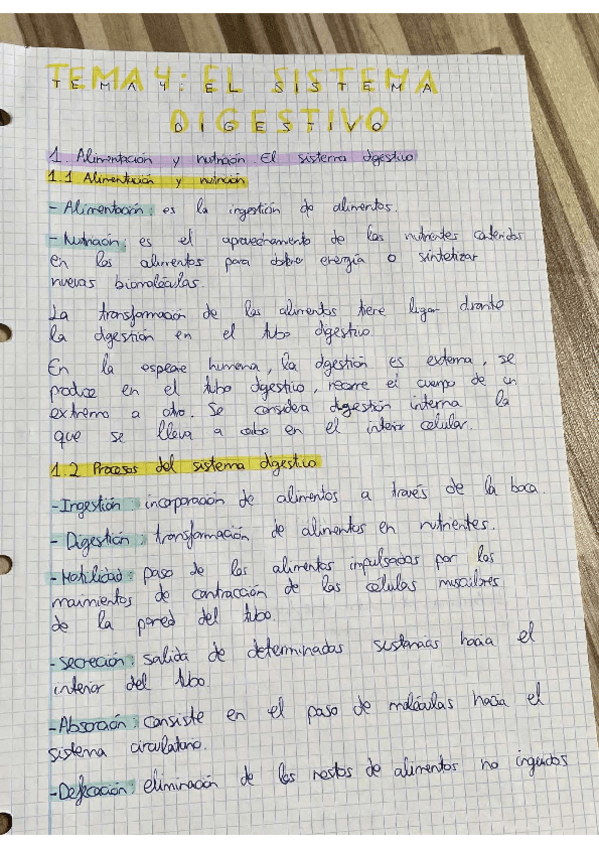 TEMA 4: EL SISTEMA
DIGESTIVO
1. Alimentación y nutrición. El sistema digestivo
1.1 Alimentación y nutrición
- Alimentación: es la ingestión de alimentos.
- Nutrición: es el aprovechamiento de los nutrientes contenidos
en los alimentos para obtener energía o sintetizar
nuevas biomoléculas.
La transformación de los alimentos tiene lugar durante
la digestión en el tubo digestivo.
En la especie humana, la digestión es externa, se
produce en el tubo digestivo, recorre el cuerpo de un
extremo a otro. Se considera digestión interna la
que se lleva a cabo en el interior celular.
1.2 Procesos del sistema digestivo
- Ingestión: incorporación de alimentos a través de la boca.
- Digestión: transformación de alimentos en nutrientes.
- Motilidad: paso de los alimentos impulsados por los
movimientos de contracción de las células musculares
de la pared del tubo.
- Secreción: salida de determinadas sustancias hacia el
interior del tubo.
- Absorción: consiste en el paso de moléculas hacia el
sistema circulatorio.
- Defecación: eliminación de los restos de alimentos no